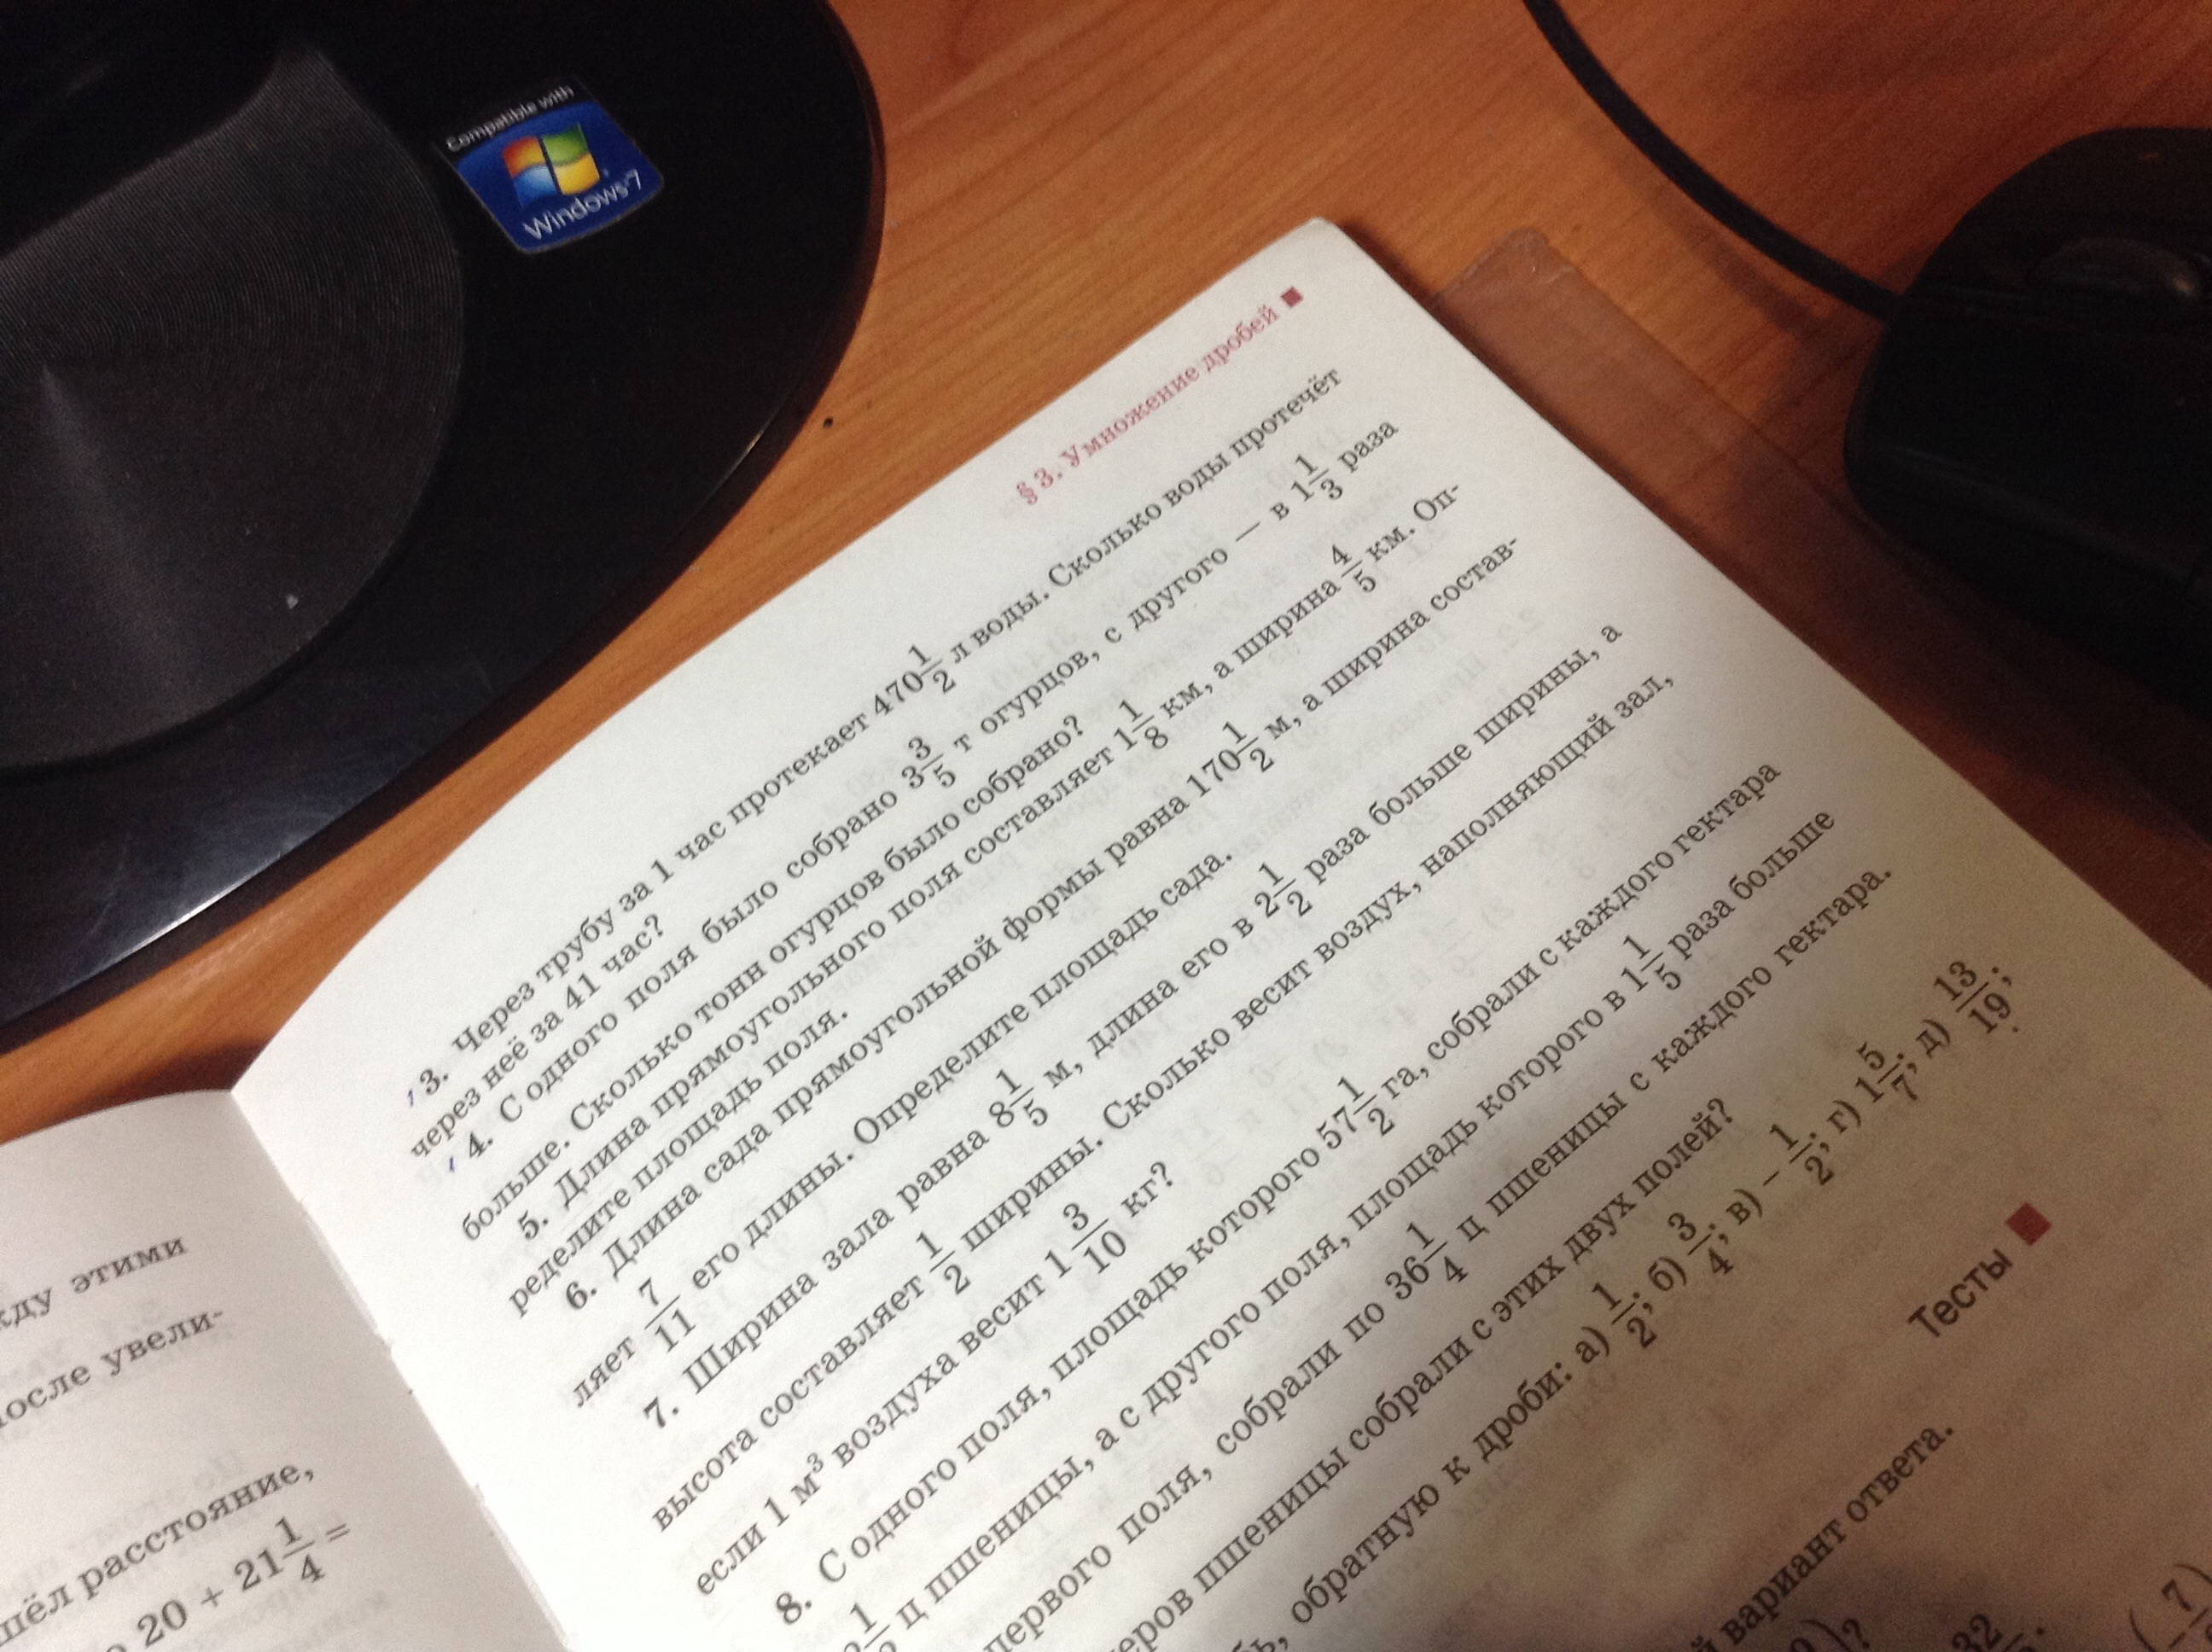 Compatible with
Windows 7
§ 3. Умножение дробей
3. Через трубу за 1 час протекает 470 1/2 л воды. Сколько воды протечёт
через неё за 41 час?
4. С одного поля было собрано 3 3/5 т огурцов, с другого — в 1 1/3 раза
больше. Сколько тонн огурцов было собрано?
5. Длина прямоугольного поля составляет 1 1/8 км, а ширина 4/5 км. Оп-
ределите площадь поля.
6. Длина сада прямоугольной формы равна 170 1/2 м, а ширина состав-
ляет 7/11 его длины. Определите площадь сада.
7. Ширина зала равна 8 1/5 м, длина его в 2 1/2 раза больше ширины, а
высота составляет 1/2 ширины. Сколько весит воздух, наполняющий зал,
если 1 м³ воздуха весит 1 3/10 кг?
8. С одного поля, площадь которого 57 1/2 га, собрали с каждого гектара
ц пшеницы, а с другого поля, площадь которого в 1 1/5 раза больше
первого поля, собрали по 36 1/4 ц пшеницы с каждого гектара.
пшеницы собрали с этих двух полей?
обратную к дроби: а) 1/2; б) 3/4; в) - 1/2; г) 1 5/7; д) 13/19;
Тесты
вариант ответа.
этими
после увели-
расстояние,
20 + 21 1/4 =